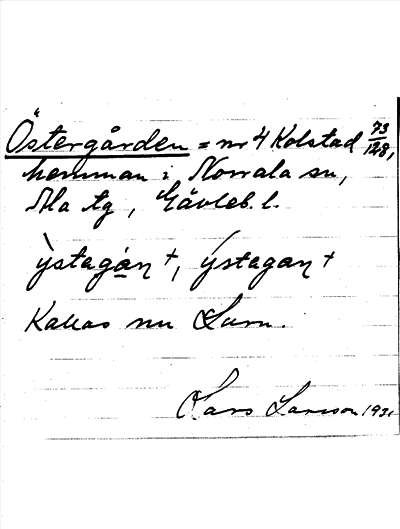 Östergården = nr 4 Kolstad 73/128,
hemman i Norrala sn,
Ala tg, Gävleb. l.
ỳstega̱ṇ †, ýstegaṇ †
Kallas nu
Lars Larsson 1931